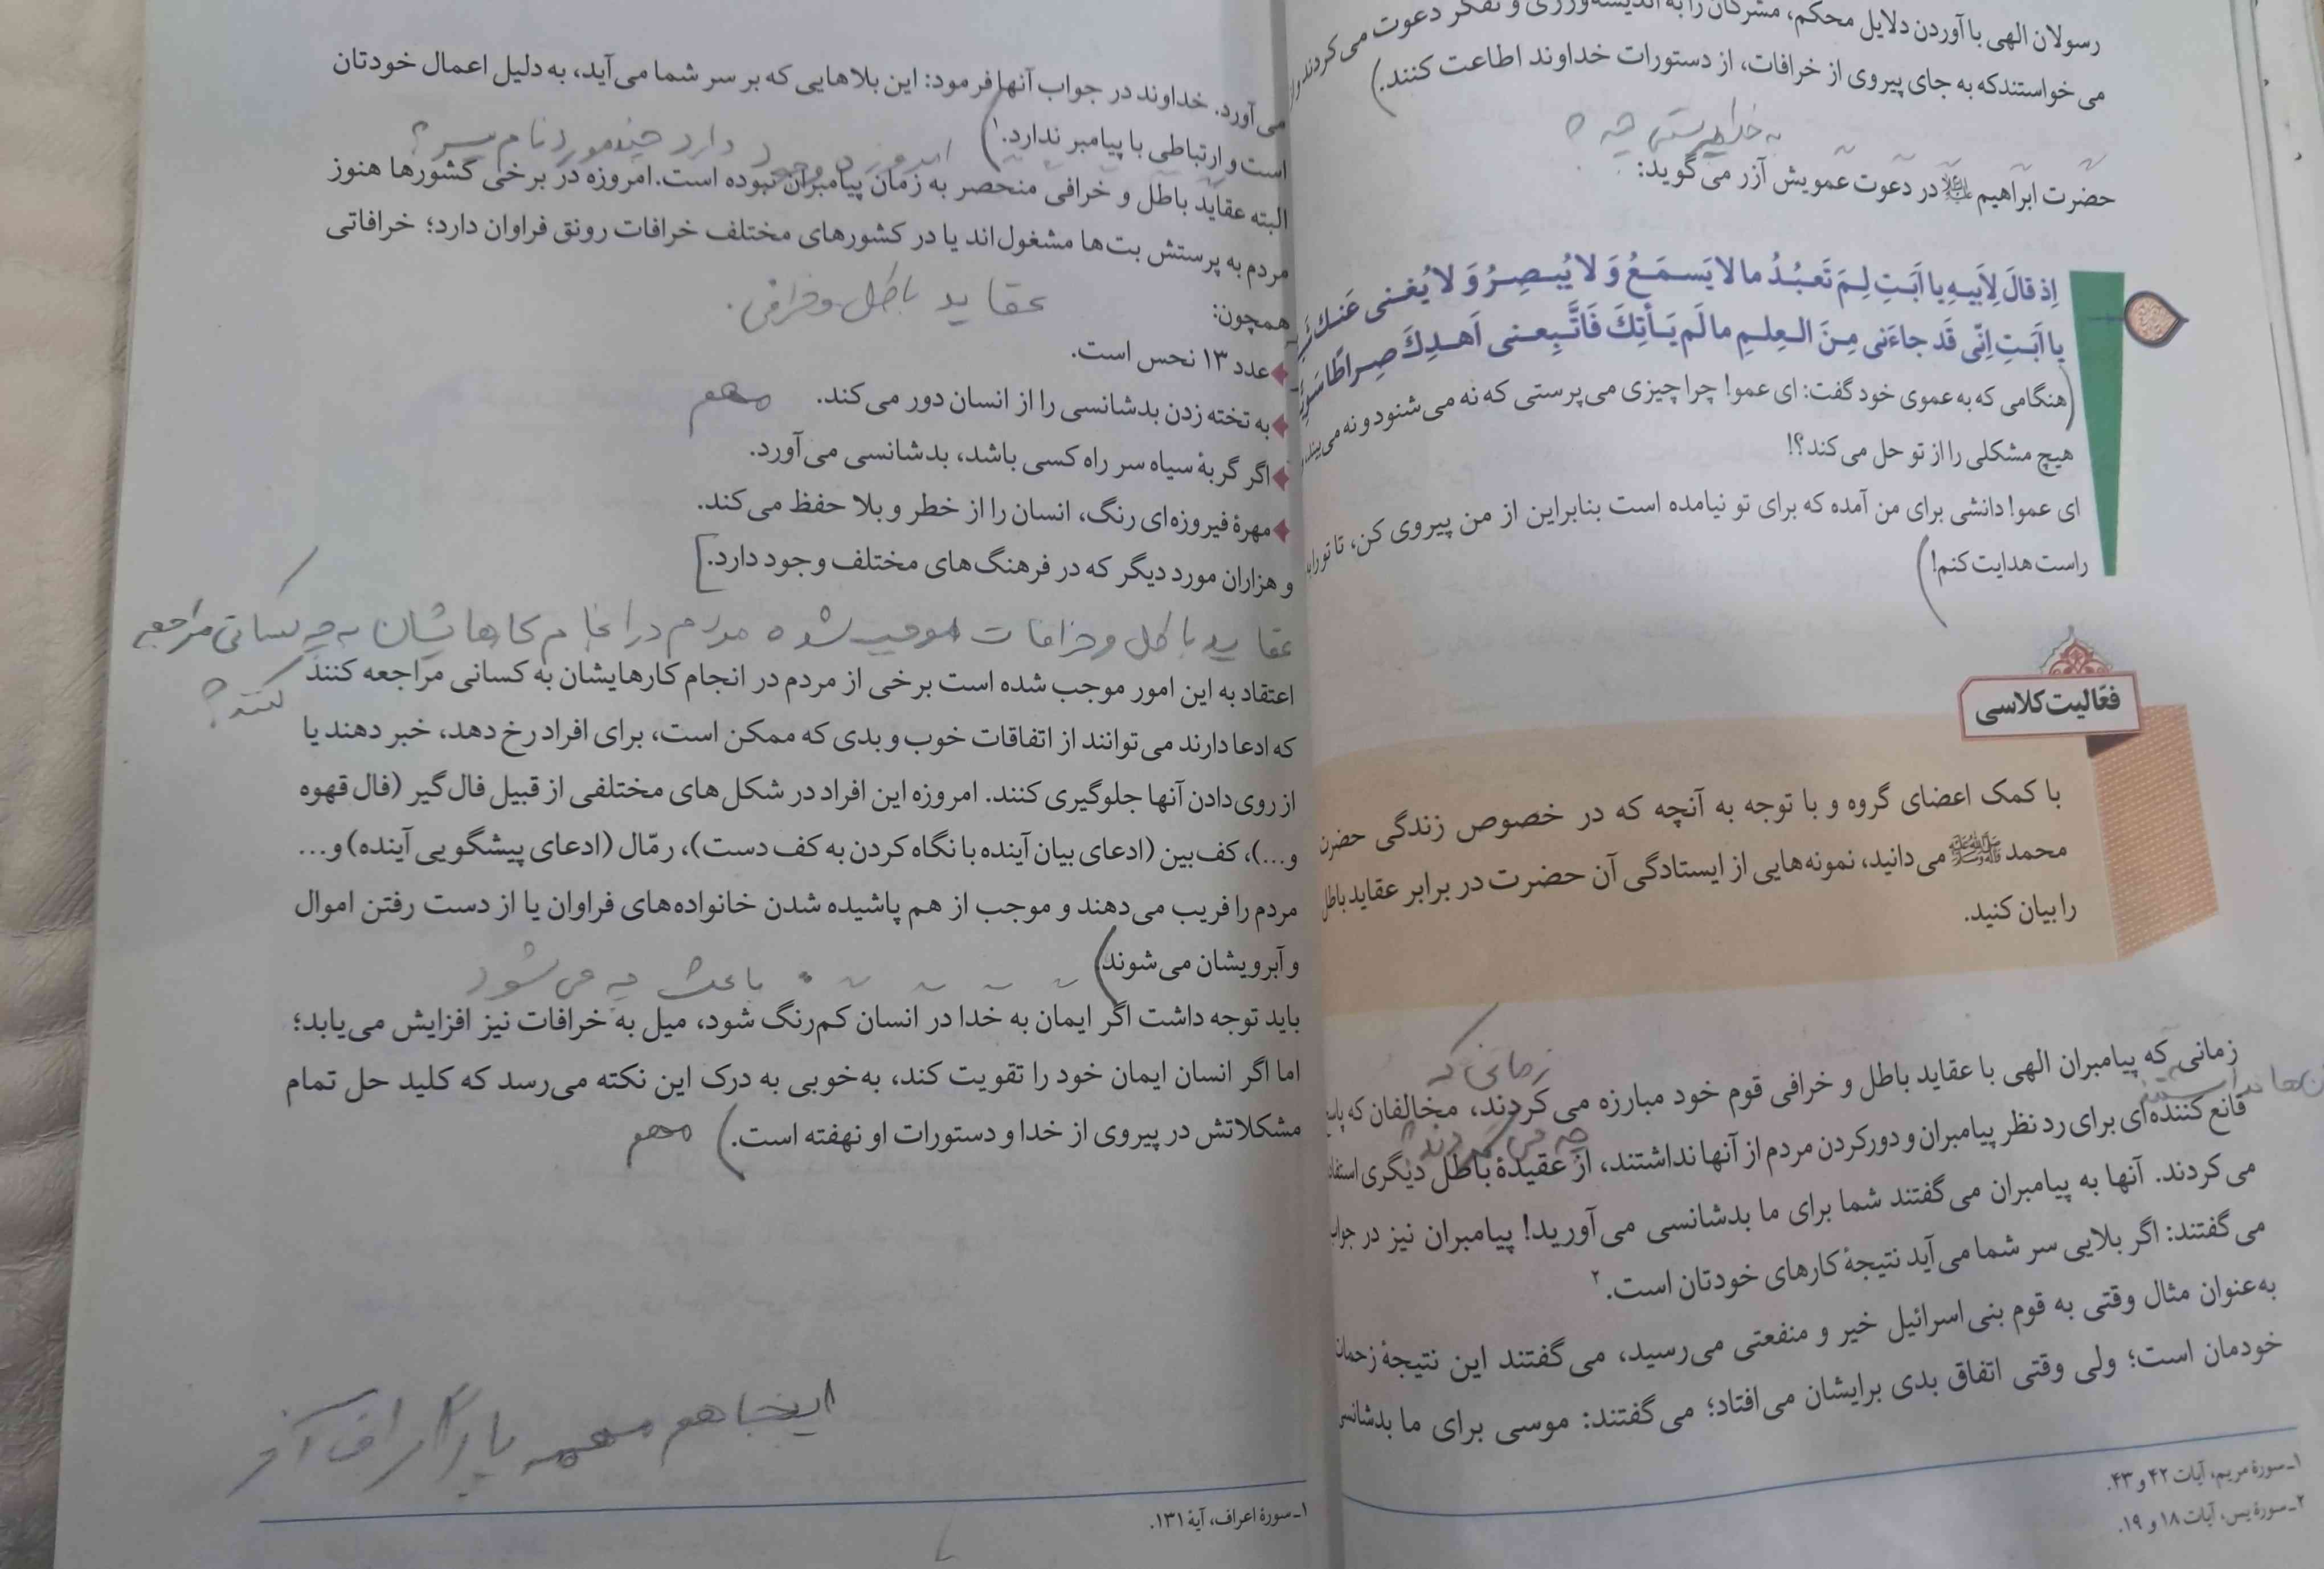 رسولان الهی با آوردن دلایل محکم، مشرکان را به اندیشه‌ورزی و تفکر دعوت می‌کردند و از
می‌خواستند که به جای پیروی از خرافات، از دستورات خداوند اطاعت کنند.)
حضرت ابراهیم علیه‌السلام در دعوت عمویش آزر می‌گوید:
اِذ قالَ لِاَبیهِ یا اَبَتِ لِمَ تَعبُدُ ما لا یَسمَعُ وَ لا یُبصِرُ وَ لا یُغنی عَنكَ
یا اَبَتِ اِنّی قَد جاءَنی مِنَ العِلمِ ما لَم یَأتِكَ فَاتَّبِعنی اَهدِكَ صِراطًا
(هنگامی که به عموی خود گفت: ای عمو! چرا چیزی می‌پرستی که نه می‌شنود و نه می‌بیند
هیچ مشکلی را از تو حل می‌کند؟!
ای عمو! دانشی برای من آمده که برای تو نیامده است بنابراین از من پیروی کن، تا تو را
راست هدایت کنم!)
فعّالیت کلاسی
با کمک اعضای گروه و با توجه به آنچه که در خصوص زندگی حضرت
محمد ﷺ می‌دانید، نمونه‌هایی از ایستادگی آن حضرت در برابر عقاید باطل
را بیان کنید.
زمانی که
زمانی که پیامبران الهی با عقاید باطل و خرافی قوم خود مبارزه می‌کردند، مخالفان که
قانع‌کننده‌ای برای رد نظر پیامبران و دورکردن مردم از آنها نداشتند، از عقیدهٔ باطل دیگری
چه می‌کردند؟
می‌کردند. آنها به پیامبران می‌گفتند شما برای ما بدشانسی می‌آورید! پیامبران نیز در جواب
می‌گفتند: اگر بلایی سر شما می‌آید نتیجهٔ کارهای خودتان است.۲
به‌عنوان مثال وقتی به قوم بنی‌اسرائیل خیر و منفعتی می‌رسید، می‌گفتند این نتیجهٔ
خودمان است؛ ولی وقتی اتفاق بدی برایشان می‌افتاد؛ می‌گفتند: موسی برای ما بدشانسی
۱ـ سورهٔ مریم، آیات ۴۲ و ۴۳.
۲ـ سورهٔ یس، آیات ۱۸ و ۱۹.
می‌آورد. خداوند در جواب آنها فرمود: این بلاهایی که بر سر شما می‌آید، به دلیل اعمال خودتان
است و ارتباطی با پیامبر ندارد.۱)
امروزه وجود دارد چند مورد نام ببر؟
البته عقاید باطل و خرافی منحصر به زمان پیامبران نبوده است. امروزه در برخی کشورها هنوز
مردم به پرستش بت‌ها مشغول‌اند یا در کشورهای مختلف خرافات رونق فراوان دارد؛ خرافاتی
همچون:
عقاید باطل و خرافی.
عدد ۱۳ نحس است.
به تخته زدن بدشانسی را از انسان دور می‌کند. مهم
اگر گربهٔ سیاه سر راه کسی باشد، بدشانسی می‌آورد.
مهرهٔ فیروزه‌ای رنگ، انسان را از خطر و بلا حفظ می‌کند.
و هزاران مورد دیگر که در فرهنگ‌های مختلف وجود دارد.]
عقاید باطل و خرافات موجب شده مردم در انجام کارهایشان به چه کسانی مراجعه
کنند؟
اعتقاد به این امور موجب شده است برخی از مردم در انجام کارهایشان به کسانی مراجعه کنند
که ادعا دارند می‌توانند از اتفاقات خوب و بدی که ممکن است، برای افراد رخ دهد، خبر دهند یا
از روی‌دادن آنها جلوگیری کنند. امروزه این افراد در شکل‌های مختلفی از قبیل فال‌گیر (فال قهوه
و...)، کف‌بین (ادعای بیان آینده با نگاه کردن به کف دست)، رمّال (ادعای پیشگویی آینده) و...
مردم را فریب می‌دهند و موجب از هم پاشیده شدن خانواده‌های فراوان یا از دست رفتن اموال
و آبرویشان می‌شوند)
باعث چه می‌شود
باید توجه داشت اگر ایمان به خدا در انسان کم‌رنگ شود، میل به خرافات نیز افزایش می‌یابد؛
اما اگر انسان ایمان خود را تقویت کند، به‌خوبی به درک این نکته می‌رسد که کلید حل تمام
مشکلاتش در پیروی از خدا و دستورات او نهفته است.) مهم
اینجا هم مهمه پاراگراف آخر
۱ـ سورهٔ اعراف، آیهٔ ۱۳۱.